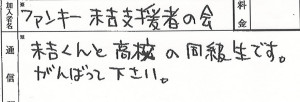 加入者名 ファンキー末吉支援者の会 料金
通信 末吉くんと高校の同級生です。
がんばって下さい。